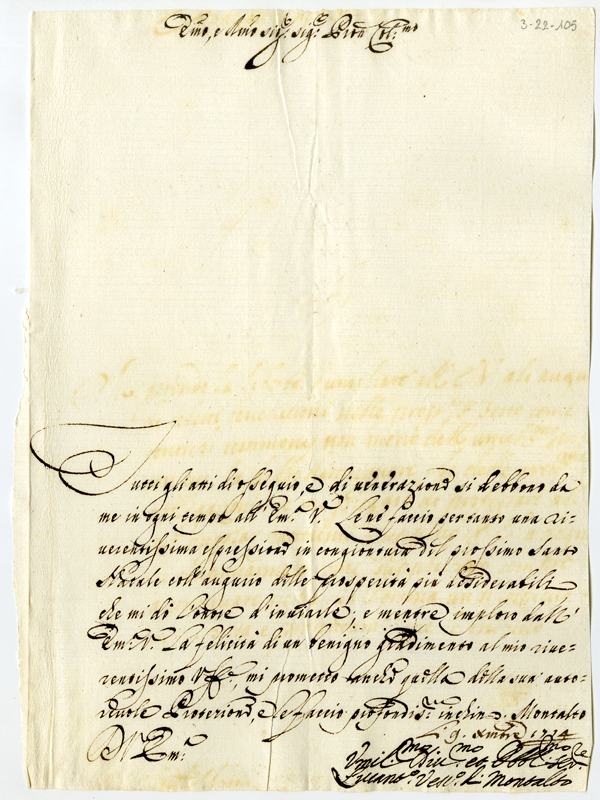 3-22-105
Emo, e Rmo Sig.r Sig.r Pron Col:mo
Tutti gli atti di ossequio, e di venerazione si debbono da
me in ogni tempo all' Em.a V.a Le ne faccio pertanto una ri-
verentissima espressione in congiontura del prossimo Santo
Natale coll' augurio delle prosperità più desiderabili
che mi dò l'onore d'inviarle; e mentre imploro dall'
Em.a V.a La felicità di un benigno gradimento al mio rive-
rentissimo Uff.o, mi prometto anche quella della sua auto-
revole Protezione, e Le faccio profondis.mo inchino. Montalto
Li 9. Xmbre 1714
D V.ra Em.a
Umil.mo Div.mo et Obbl.mo Ser.re
Lucant.o Vesc.o di Montalto